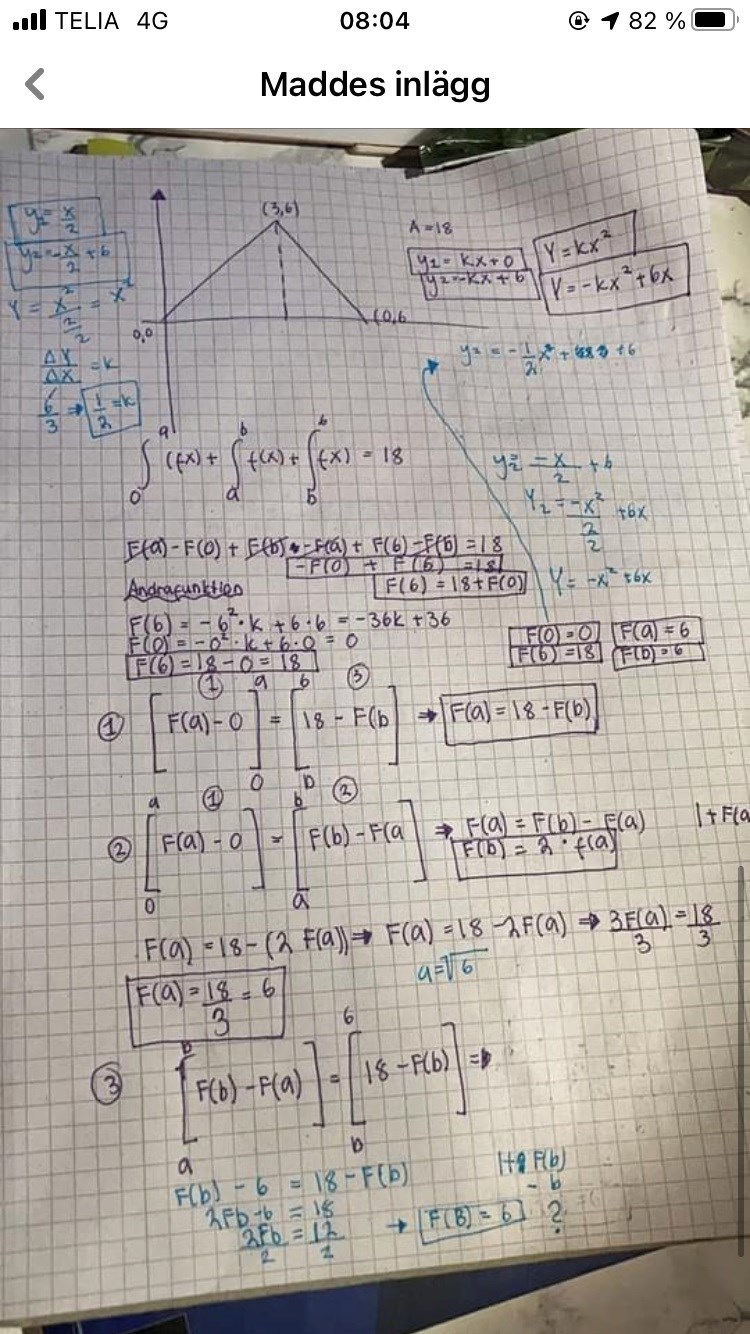 TELIA 4G 08:04 82 %
Maddes inlägg
y₂ = x/2
y₂ = -x/2 + 6
Y = x²/2/2 = x²
ΔY/ΔX = k
6/3 → 1/2 = k
(3,6)
0,0
(0,6
A = 18
y₁ = kx + 0
y₂ = -kx + 6
Y = kx²
Y = -kx² + 6x
y₂ = -1/2 x + 6
∫₀ᵃ (fx) + ∫ₐᵇ f(x) + ∫_b⁶ f(x) = 18
y₂ = -x/2 + 6
Y₂ = -x²/2/2 + 6x
Y = -x² + 6x
F(a) - F(0) + F(b) - F(a) + F(6) - F(b) = 18
-F(0) + F(6) = 18
F(6) = 18 + F(0)
Andrafunktion
F(6) = -6²·k + 6·6 = -36k + 36
F(0) = -0²·k + 6·0 = 0
F(6) = 18 - 0 = 18
F(0) = 0 F(a) = 6
F(6) = 18 F(b) = 6
① ③
① [F(a) - 0]₀ᵃ = [18 - F(b]_b⁶ ⇒ F(a) = 18 - F(b)
① ②
② [F(a) - 0]₀ᵃ = [F(b) - F(a]ₐᵇ ⇒ F(a) = F(b) - F(a)
F(b) = 2 · f(a)
1 + F(a
F(a) = 18 - (2 F(a)) ⇒ F(a) = 18 - 2F(a) ⇒ 3F(a)/3 = 18/3
a = √6
F(a) = 18/3 = 6
③ [F(b) - F(a)]ₐᵇ = [18 - F(b)]_b⁶ ⇒
F(b) - 6 = 18 - F(b)
2Fb - 6 = 18
2Fb/2 = 12/2 → F(B) = 6 ?
F(b)